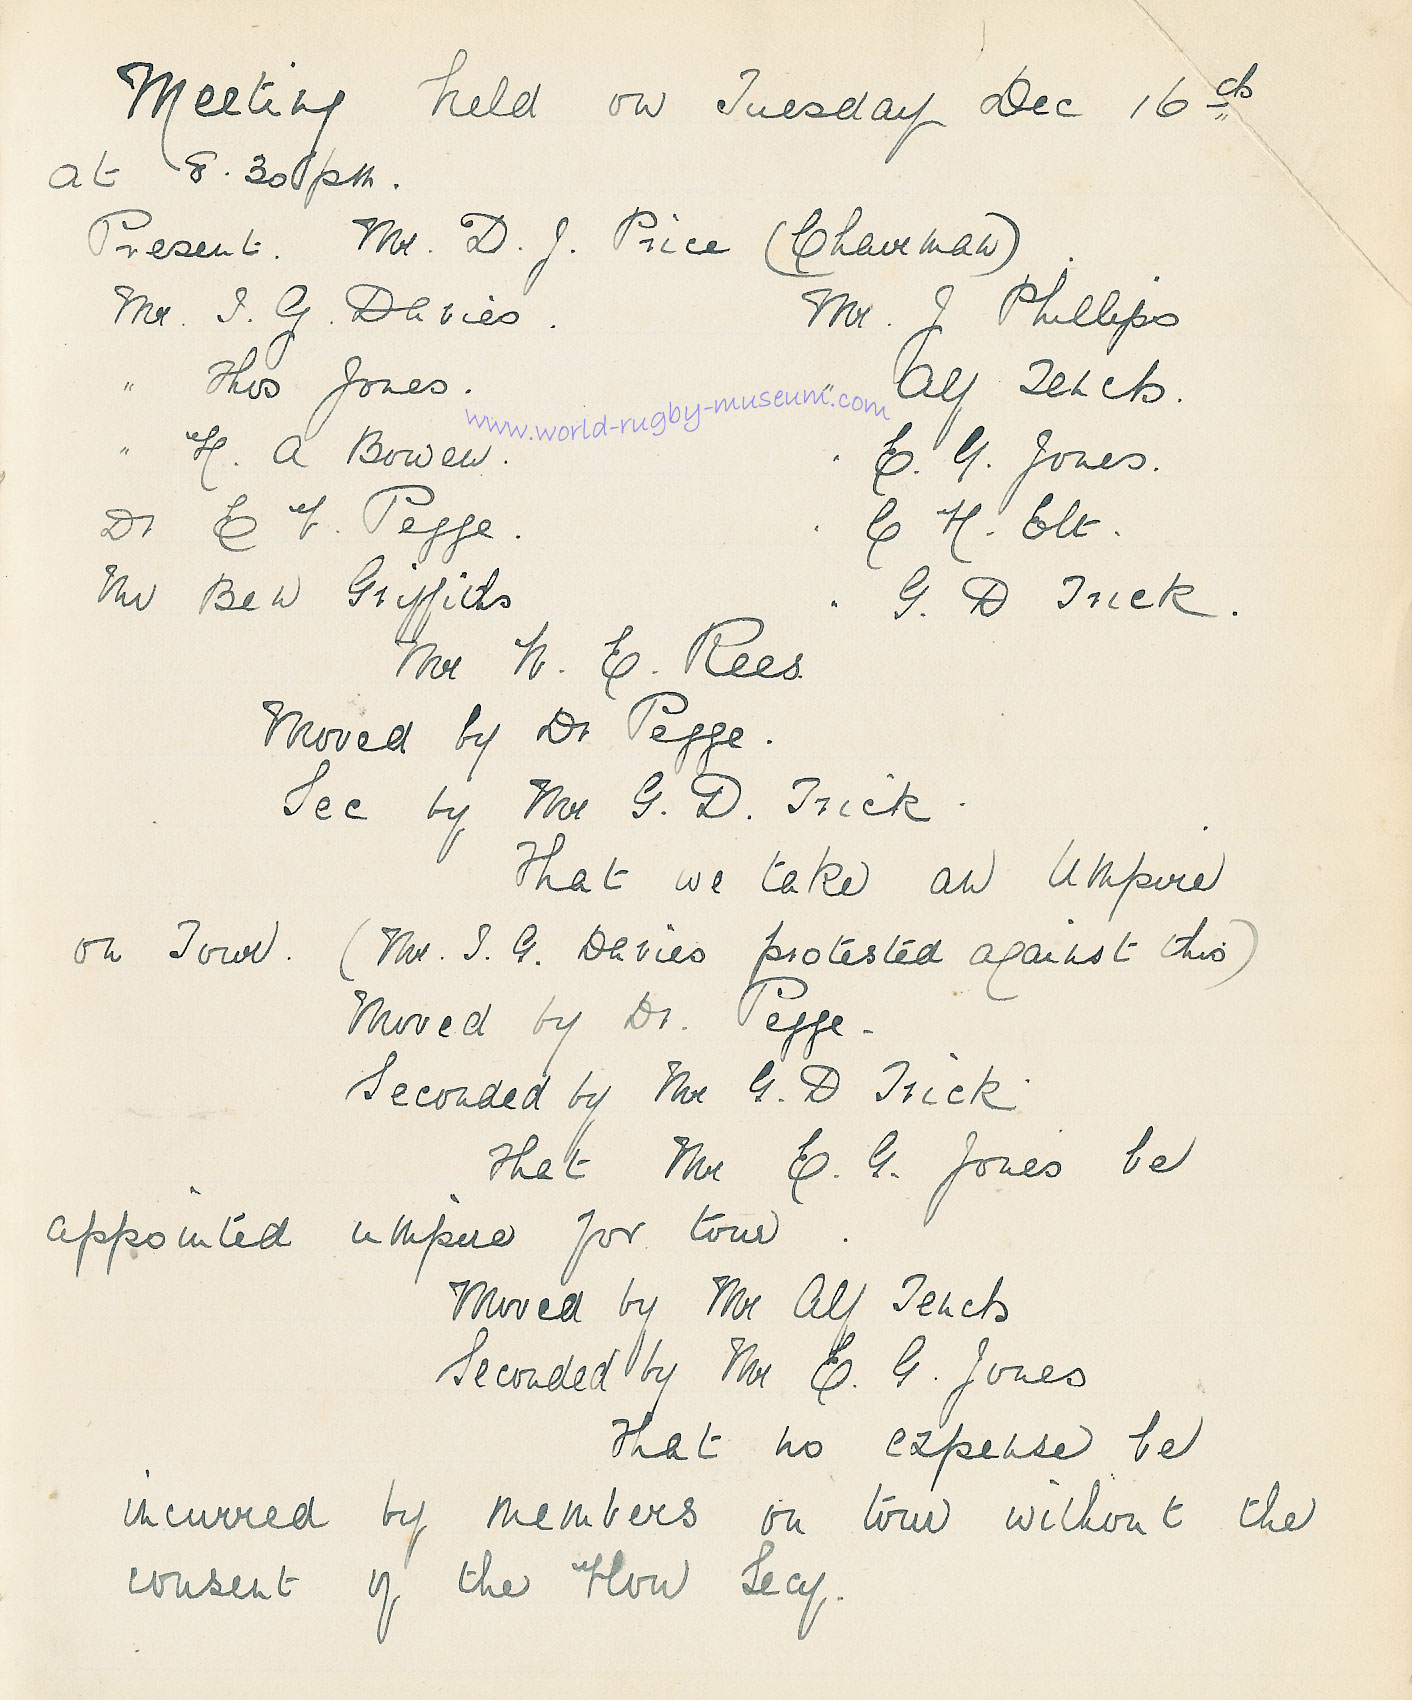 Meeting held on Tuesday Dec 16th
at 8.30 pm.
Present. Mr. D. J. Price (Chairman)
Mr. I. G. Davies. Mr. J Phillips
" Thos Jones. " Alf Tench.
www.world-rugby-museum.com
" H. A Bowen. " E. G. Jones.
Dr E V. Pegge. " C H. Elt.
Mr Ben Griffiths " G. D Trick.
Mr W. E. Rees.
Moved by Dr Pegge.
Sec by Mr G. D. Trick.
That we take an Umpire
on Tour. (Mr. I. G. Davies protested against this)
Moved by Dr. Pegge.
Seconded by Mr G. D Trick.
That Mr E. G. Jones be
appointed umpire for tour.
Moved by Mr Alf Tench
Seconded by Mr E. G. Jones
That no expense be
incurred by members on tour without the
consent of the Hon Secy.